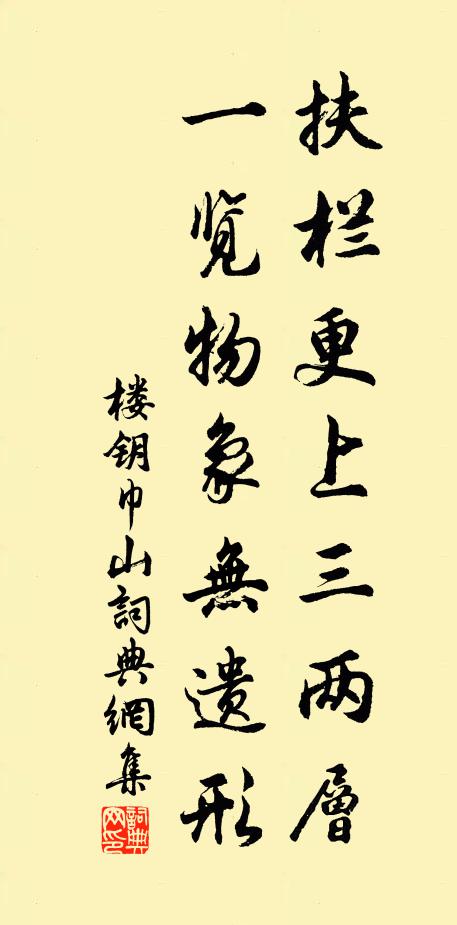 扶栏更上三两層
一览物象無遗形
楼钥巾山詞典網集
詞典网印